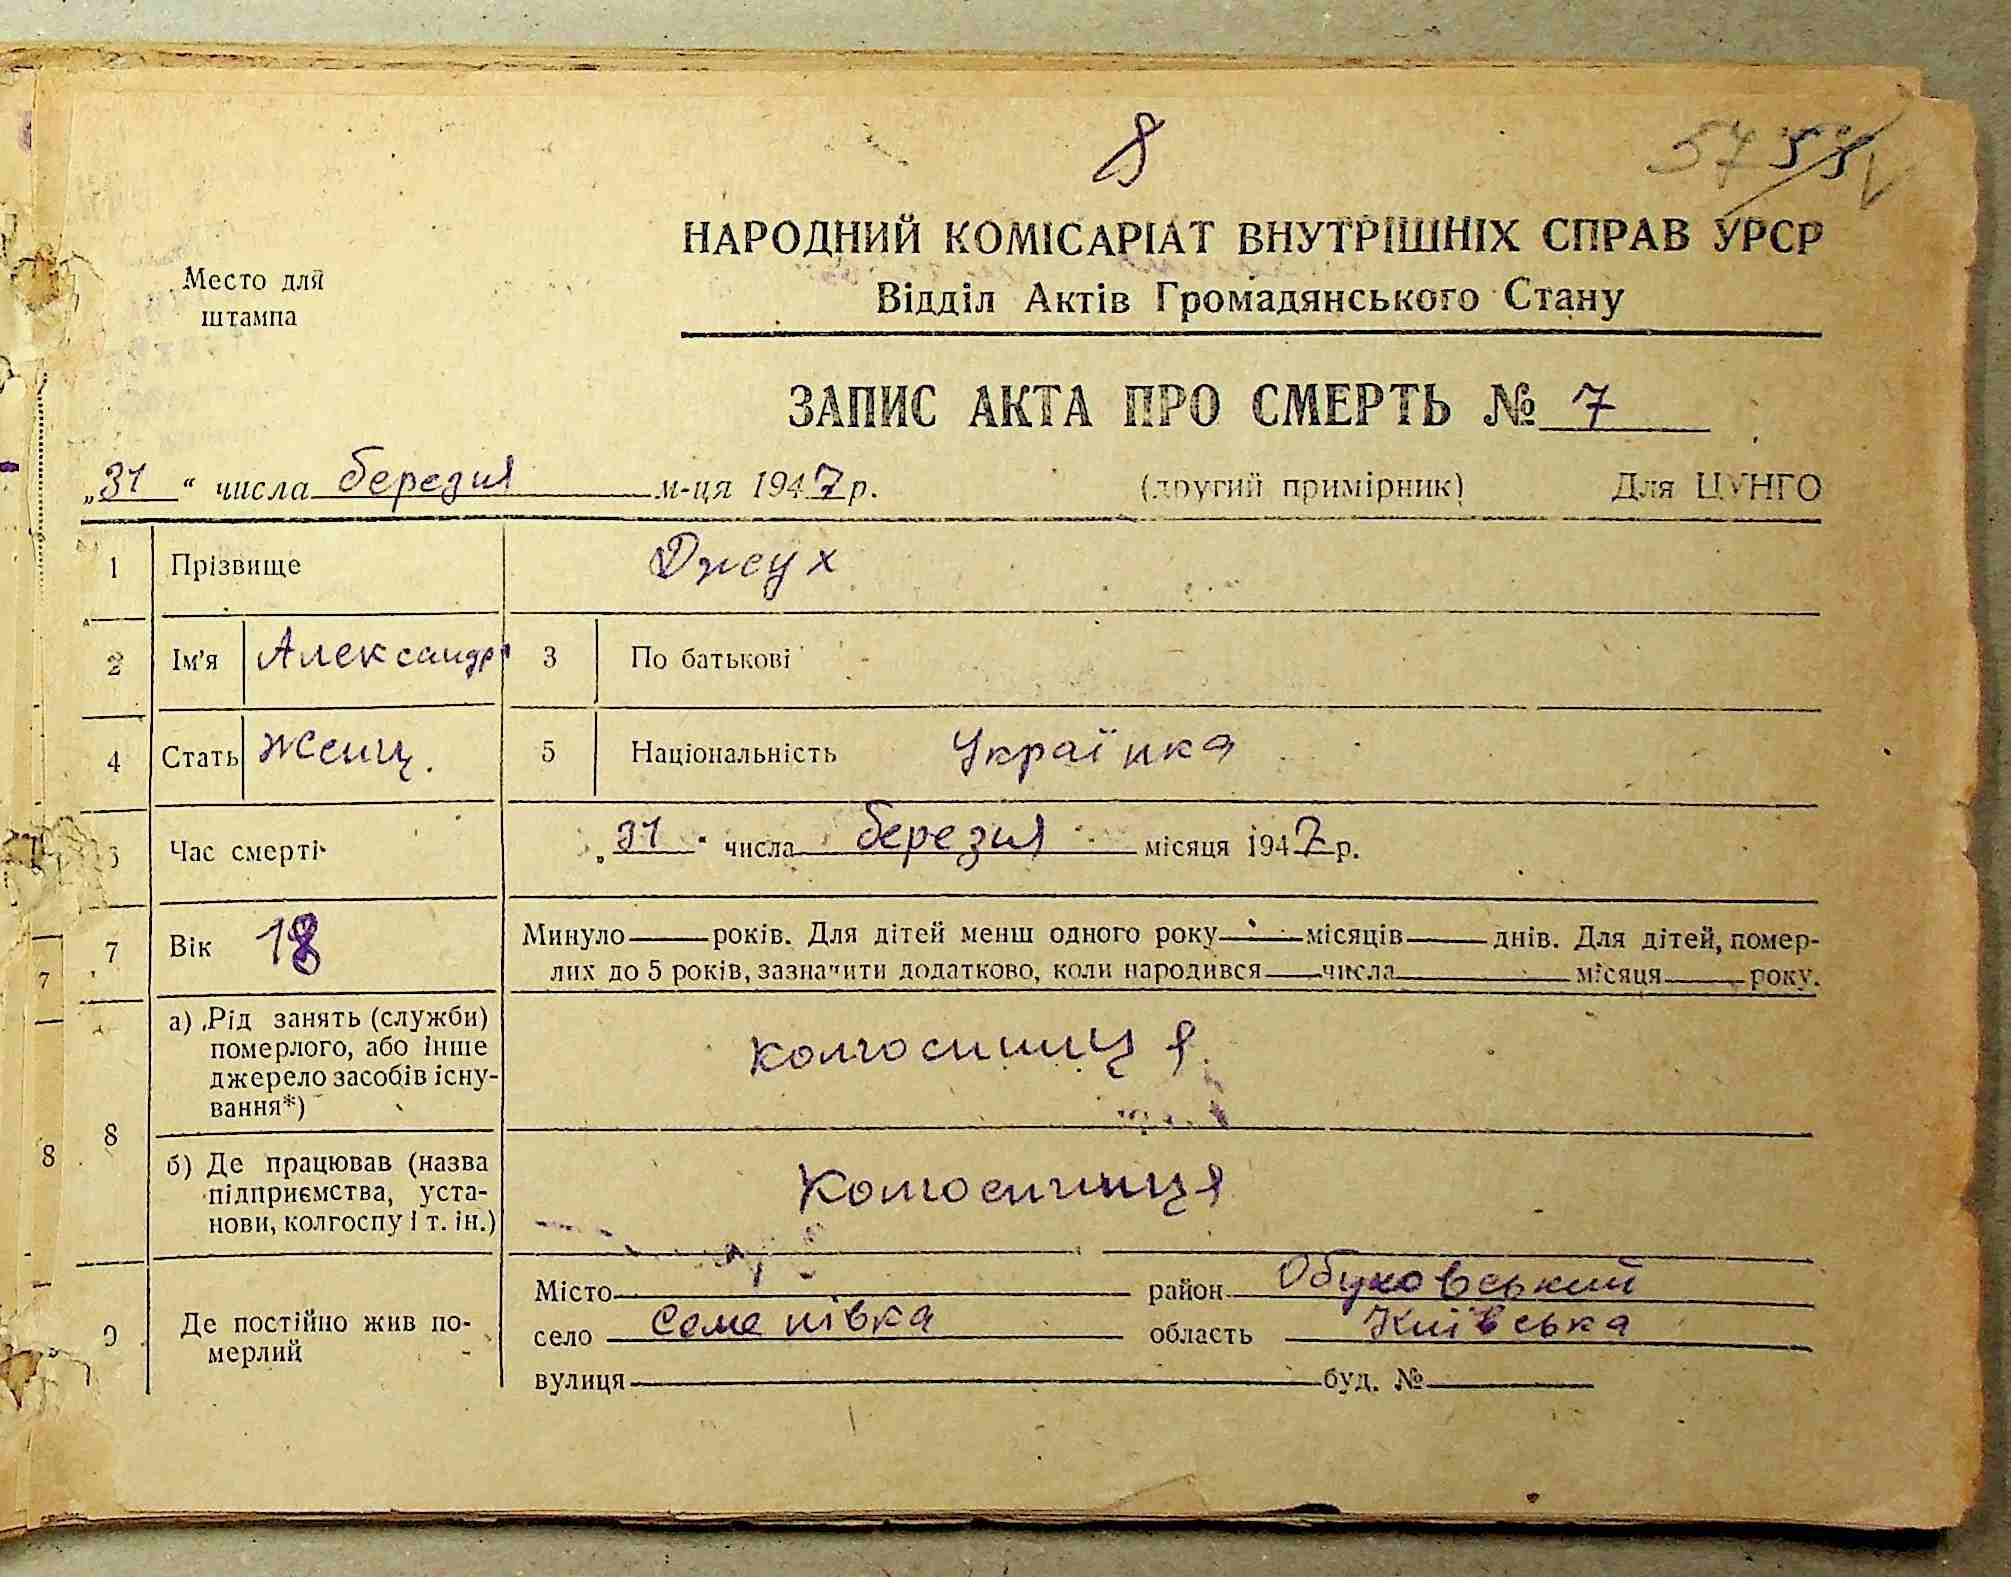 8
57
Место для
штампа
НАРОДНИЙ КОМІСАРІАТ ВНУТРІШНІХ СПРАВ УРСР
Відділ Актів Громадянського Стану
ЗАПИС АКТА ПРО СМЕРТЬ № 7
„31“ числа березня м-ця 1947 р. (другий примірник) Для ЦУНГО
1 Прізвище Джух
2 Ім'я Александр 3 По батькові
4 Стать Женщ. 5 Національність Українка
6 Час смерті „31“ числа березня місяця 1947 р.
7 Вік 18 Минуло років. Для дітей менш одного року місяців днів. Для дітей, помер-
лих до 5 років, зазначити додатково, коли народився числа місяця року.
8 а) Рід занять (служби)
померлого, або інше
джерело засобів існу-
вання*)
колгоспниця
б) Де працював (назва
підприємства, уста-
нови, колгоспу і т. ін.)
Колгоспниця
9 Де постійно жив по-
мерлий
Місто район Обуховський
село Семенівка область Київська
вулиця буд. №
7
8